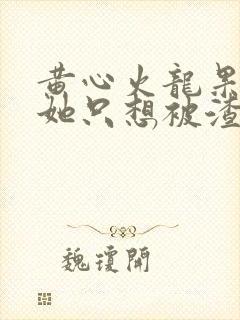 黄心火龍果
她只想被渣
魏瓊開